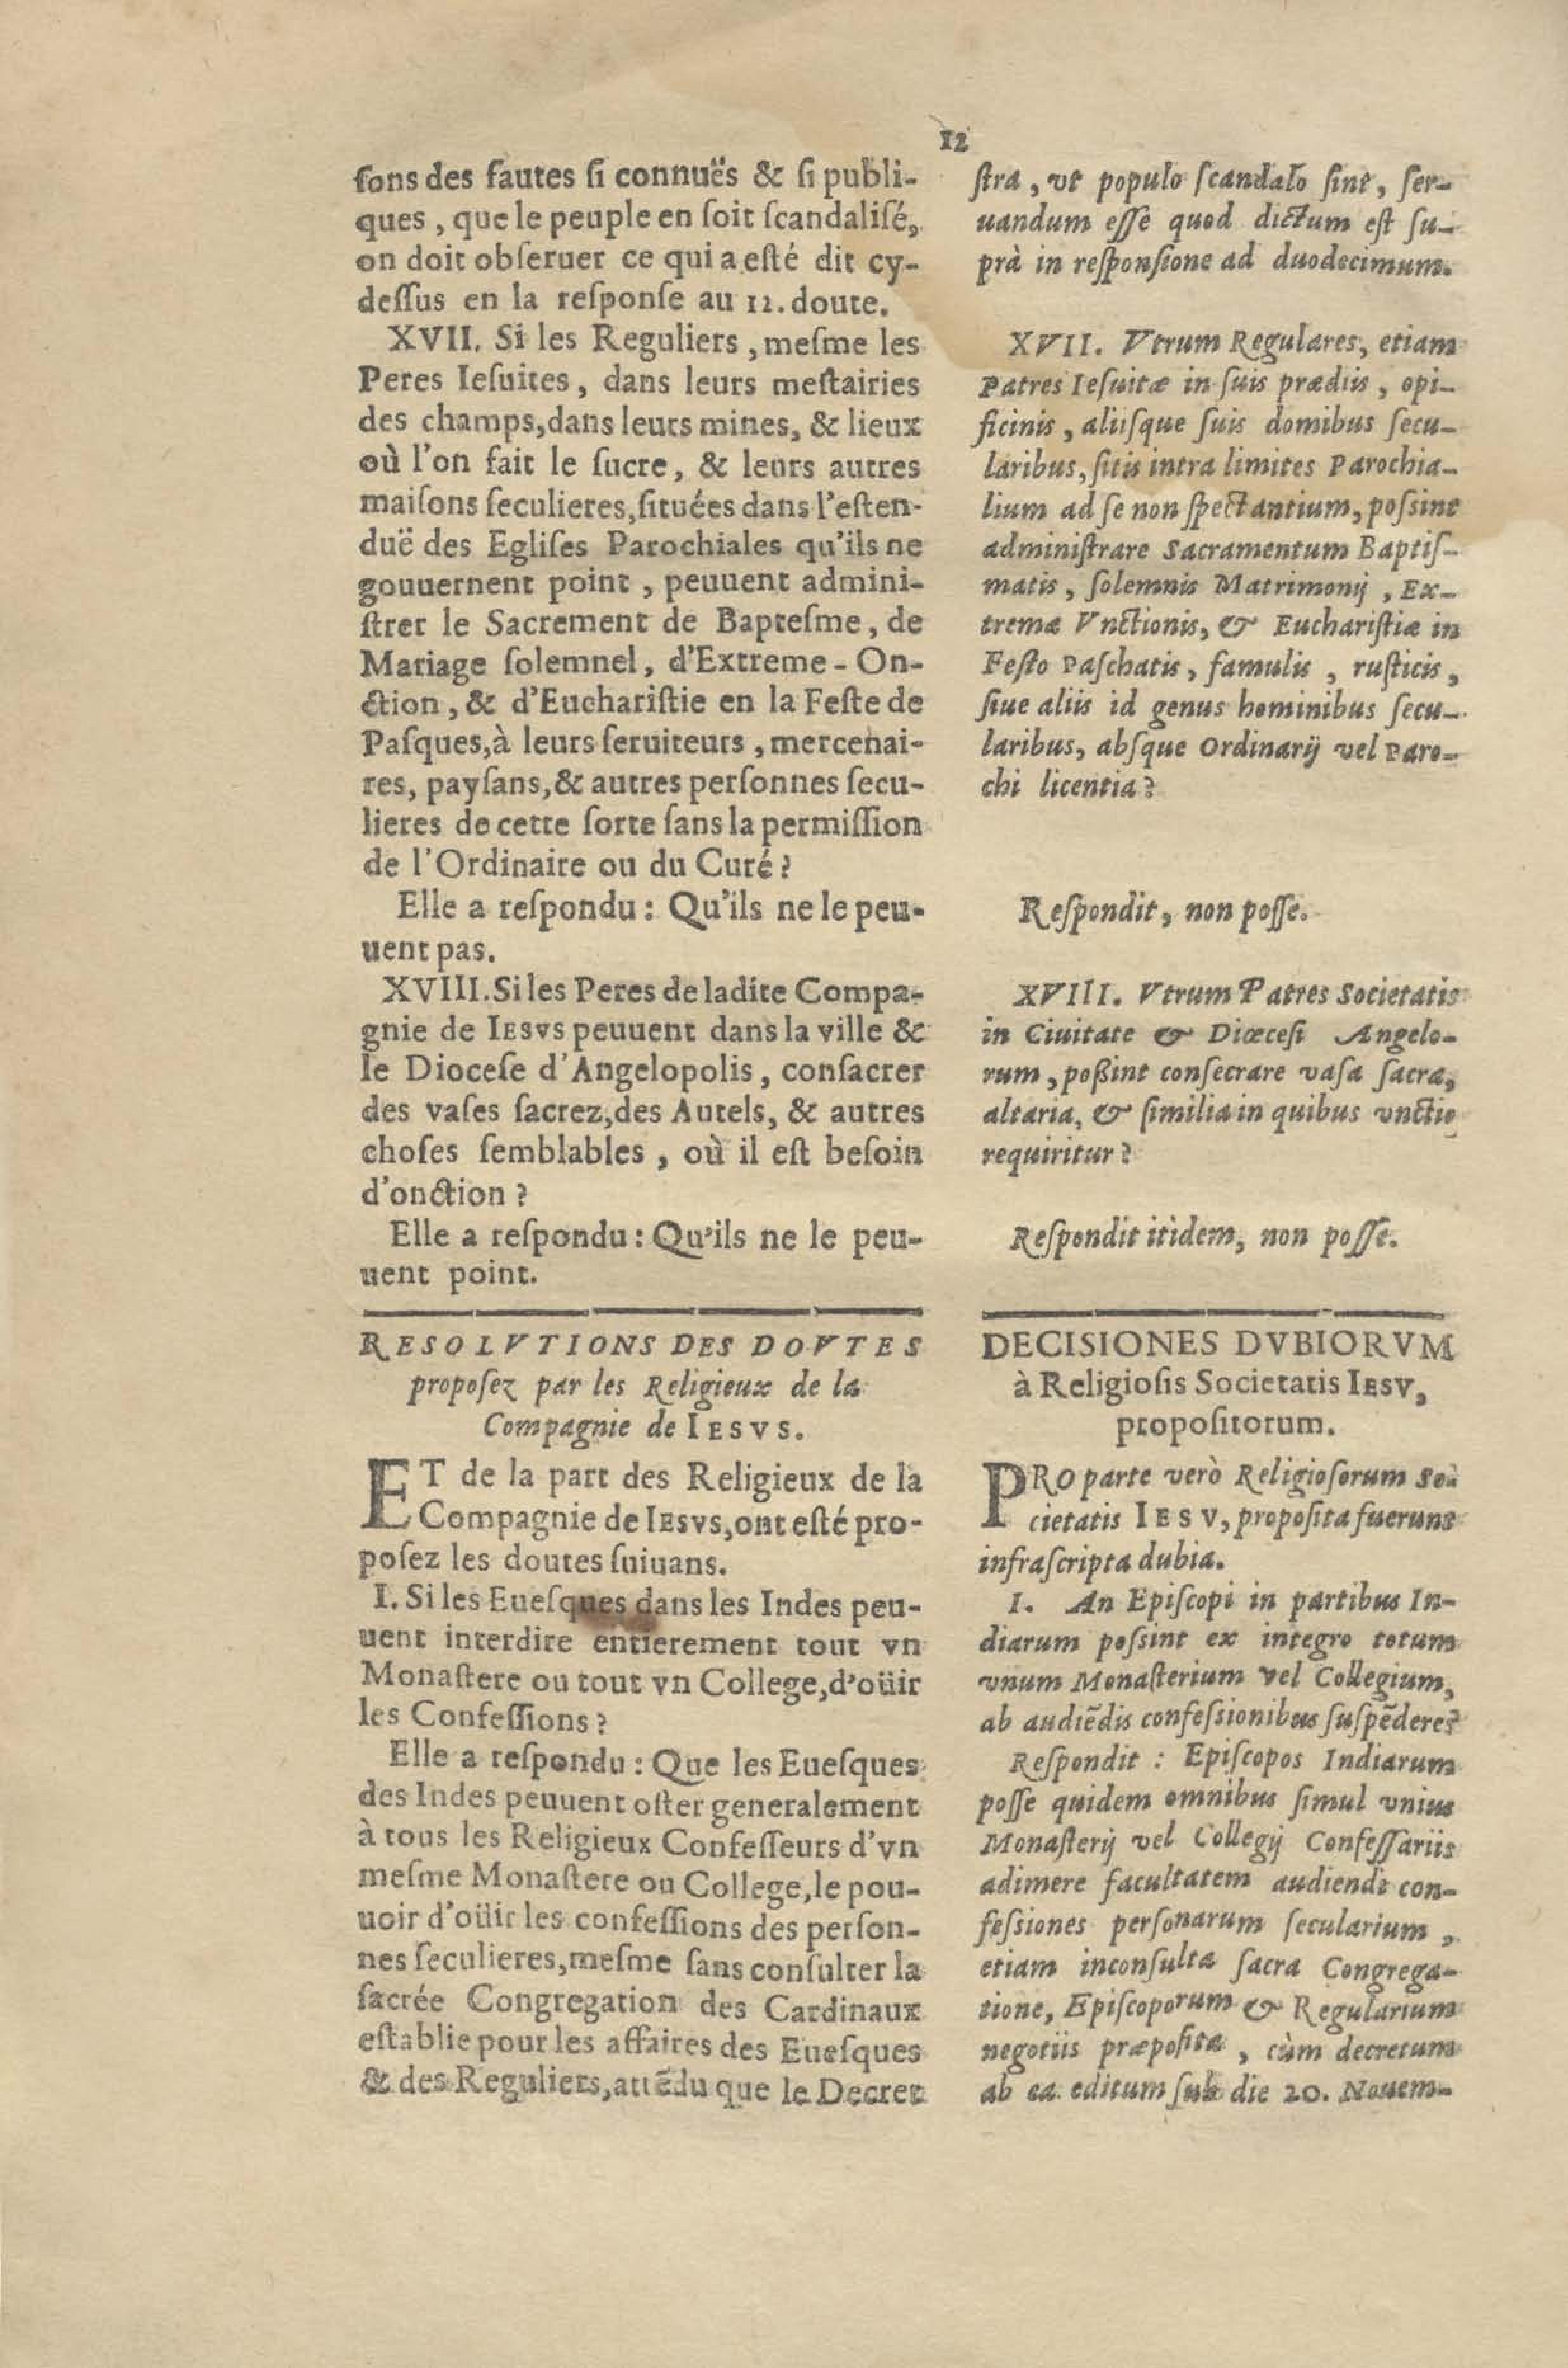 12
sons des fautes si connuës & si publi-
ques, que le peuple en soit scandalisé,
on doit obseruer ce qui a esté dit cy-
dessus en la response au 12. doute.
XVII. Si les Reguliers, mesme les
Peres Iesuites, dans leurs mestairies
des champs, dans leurs mines, & lieux
où l'on fait le sucre, & leurs autres
maisons seculieres, situées dans l'esten-
duë des Eglises Parochiales qu'ils ne
gouuernent point, peuuent admini-
strer le Sacrement de Baptesme, de
Mariage solemnel, d'Extreme-On-
ction, & d'Eucharistie en la Feste de
Pasques, à leurs seruiteurs, mercenai-
res, paysans, & autres personnes secu-
lieres de cette sorte sans la permission
de l'Ordinaire ou du Curé?
Elle a respondu: Qu'ils ne le peu-
uent pas.
XVIII. Si les Peres de ladite Compa-
gnie de IESVS peuuent dans la ville &
le Diocese d'Angelopolis, consacrer
des vases sacrez, des Autels, & autres
choses semblables, où il est besoin
d'onction?
Elle a respondu: Qu'ils ne le peu-
uent point.
RESOLVTIONS DES DOVTES
proposez par les Religieux de la
Compagnie de IESVS.
ET de la part des Religieux de la
Compagnie de IESVS, ont esté pro-
posez les doutes suiuans.
I. Si les Euesques dans les Indes peu-
uent interdire entierement tout vn
Monastere ou tout vn College, d'oüir
les Confessions?
Elle a respondu: Que les Euesques
des Indes peuuent oster generalement
à tous les Religieux Confesseurs d'vn
mesme Monastere ou College, le pou-
uoir d'oüir les confessions des person-
nes seculieres, mesme sans consulter la
sacrée Congregation des Cardinaux
establie pour les affaires des Euesques
& des Reguliers, attēdu que le Decret
stra, vt populo scandalo sint, ser-
uandum esse quod dictum est su-
prà in responsione ad duodecimum.
XVII. Vtrum Regulares, etiam
Patres Iesuitæ in suis prædiis, opi-
ficinis, aliisque suis domibus secu-
laribus, sitis intra limites Parochia-
lium ad se non spectantium, possint
administrare Sacramentum Baptis-
matis, solemnis Matrimonij, Ex-
tremæ Vnctionis, & Eucharistiæ in
Festo Paschatis, famulis, rusticis,
siue aliis id genus hominibus secu-
laribus, absque Ordinarij vel Paro-
chi licentia?
Respondit, non posse.
XVIII. Vtrum Patres Societatis
in Ciuitate & Diœcesi Angelo-
rum, poßint consecrare vasa sacra,
altaria, & similia in quibus vnctio
requiritur?
Respondit itidem, non posse.
DECISIONES DVBIORVM
à Religiosis Societatis IESV,
propositorum.
PRO parte verò Religiosorum So-
cietatis IESV, proposita fuerunt
infrascripta dubia.
I. An Episcopi in partibus In-
diarum possint ex integro totum
vnum Monasterium vel Collegium,
ab audiēdis confessionibus suspēdere?
Respondit: Episcopos Indiarum
posse quidem omnibus simul vnius
Monasterij vel Collegij Confessariis
adimere facultatem audiendi con-
fessiones personarum secularium,
etiam inconsulta sacra Congrega-
tione, Episcoporum & Regularium
negotiis præposita, cùm decretum
ab ea editum sub die 20. Nouem-